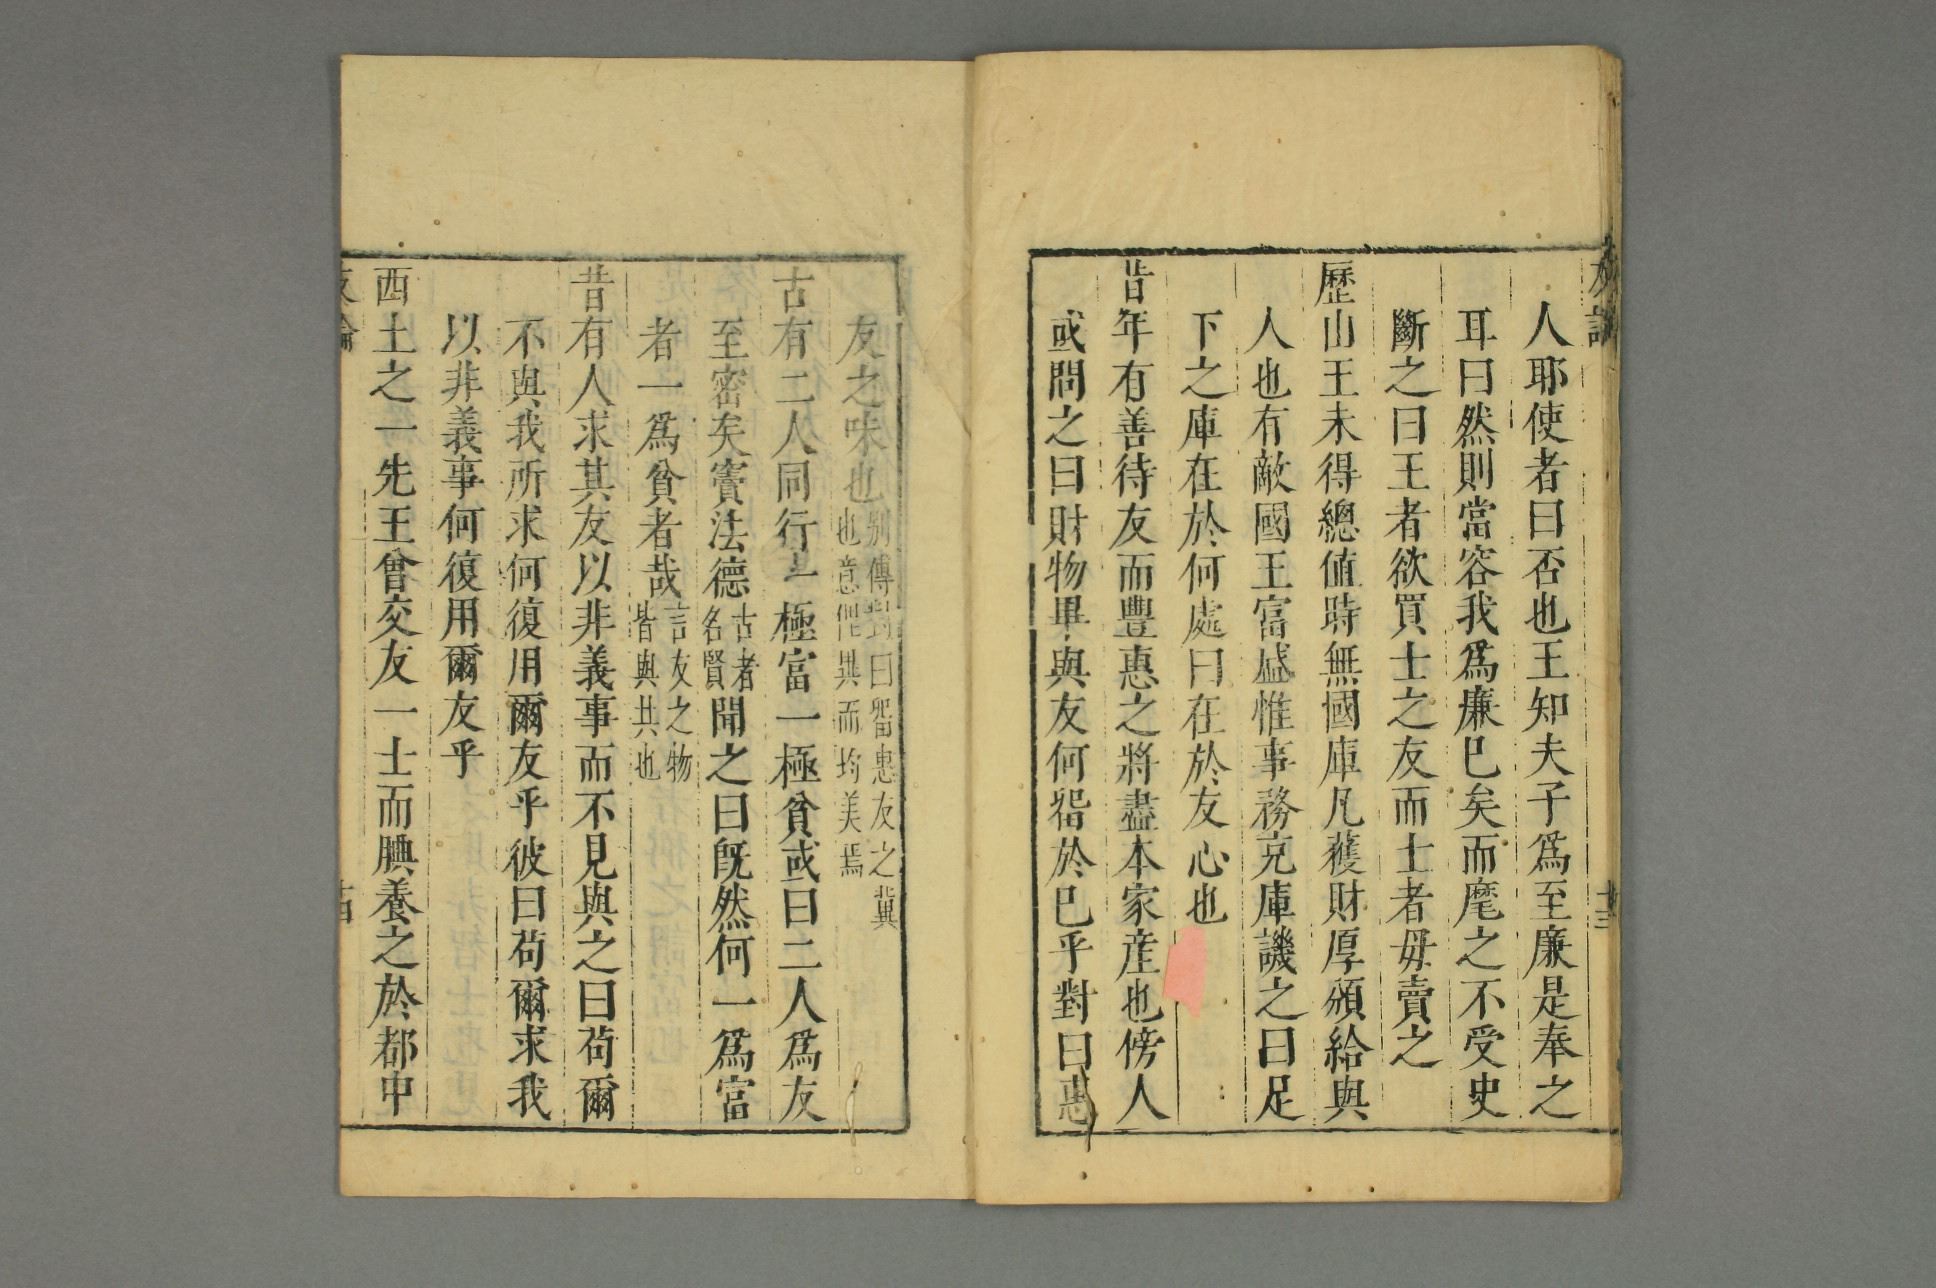 友論
十三
人耶使者曰否也王知夫子爲至廉是奉之
耳曰然則當容我爲廉已矣而麾之不受史
斷之曰王者欲買士之友而士者毋賣之
歷山王未得總值時無國庫凡獲財厚頒給與
人也有敵國王富盛惟事務充庫譏之曰足
下之庫在於何處曰在於友心也
昔年有善待友而豊惠之將盡本家産也傍人
或問之曰財物畢與友何畱於已乎對曰惠
友之味也
别傳對曰畱惠友之冀
也意俚異而均美焉
古有二人同行一極富一極貧或曰二人爲友
至密矣竇法德
古者
名賢
聞之曰旣然何一爲富
者一爲貧者哉
言友之物
皆與共也
昔有人求其友以非義事而不見與之曰苟爾
不與我所求何復用爾友乎彼曰苟爾求我
以非義事何復用爾友乎
西土之一先王曾交友一士而腆養之於都中
友論
十四